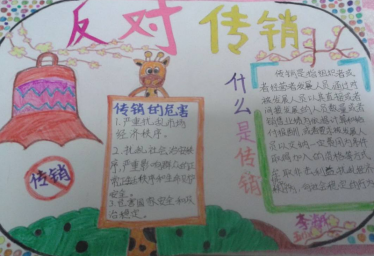 反对传销
传销的危害
1.严重扰乱市场
经济秩序。
2.扰乱社会治安秩
序,严重影响群众的正
常生活秩序和生命财产
安全。
3.危害国家安全和政
治稳定。
传销
什么是传销
传销是指组织者或
者经营者发展人员,通过对
被发展人员以其直接或者
间接发展的人员数量或者
销售业绩为依据计算和给
付报酬,或者要求被发展人
员以交纳一定费用为条件
取得加入的资格等方式